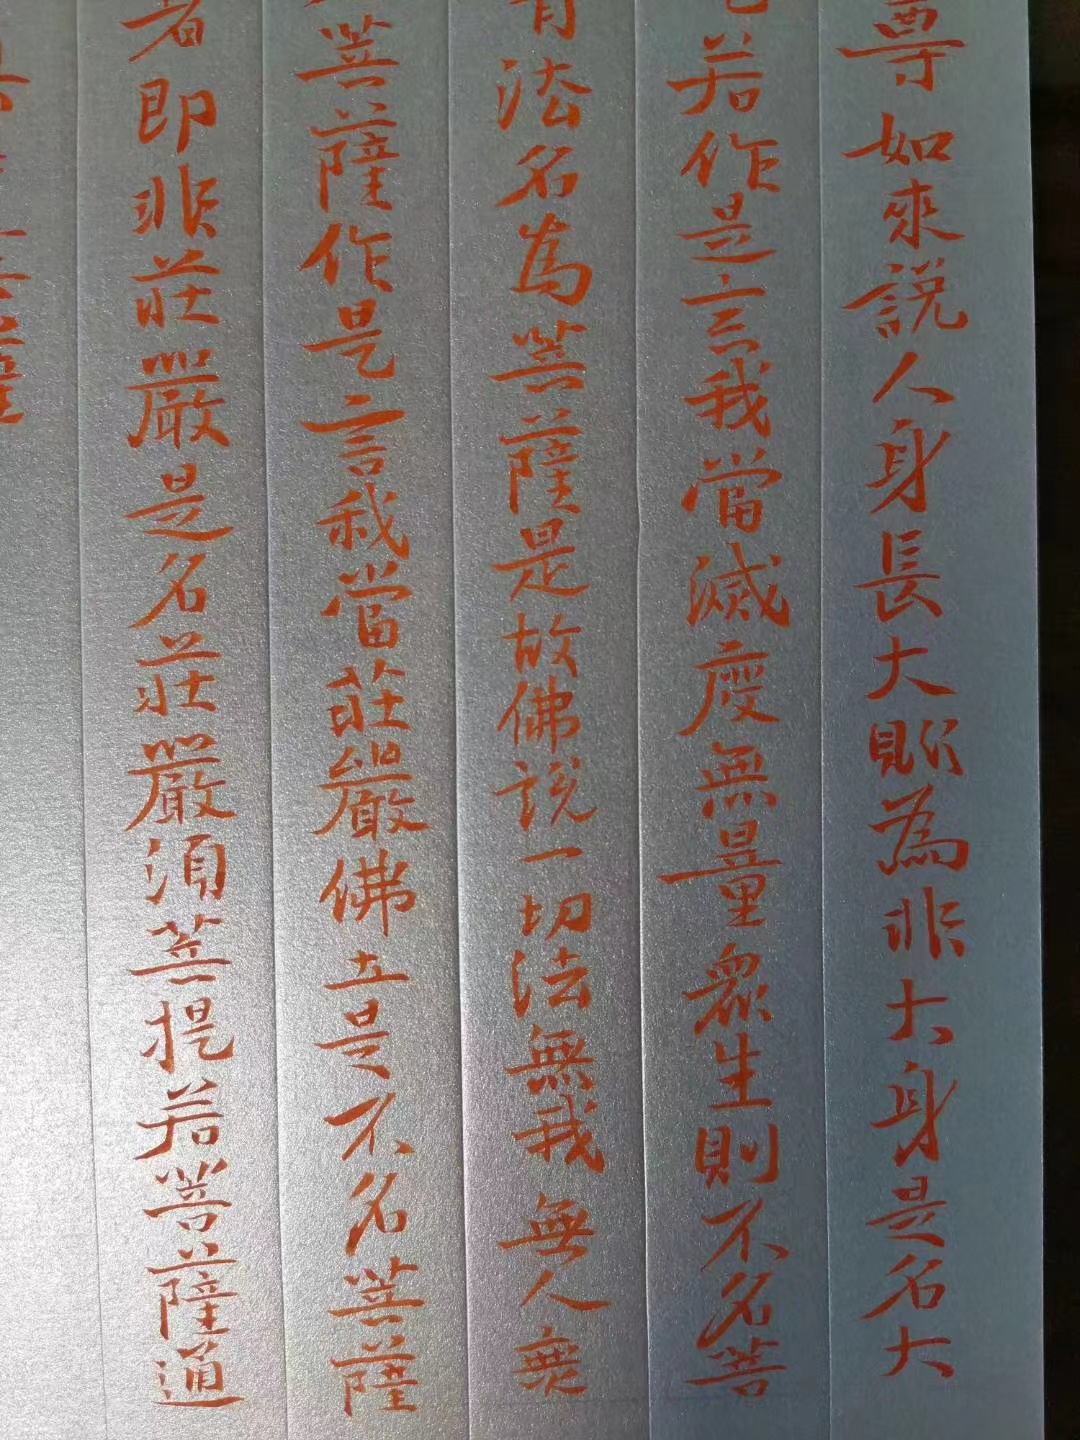 尊如來說人身長大則為非大身是名大
若作是言我當滅度無量眾生則不名菩
有法名為菩薩是故佛說一切法無我無人衆
菩薩作是言我當莊嚴佛土是不名菩薩
者即非莊嚴是名莊嚴須菩提若菩薩通